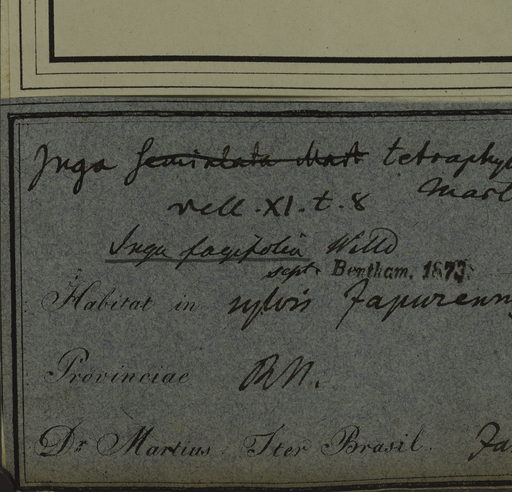 Inga semialata Mart tetraphy
Mart
vell. XI. t. 8
Inga fagifolia Willd
sept. Bentham. 1873.
Habitat in sylvis Japurenn
Provinciae R.N.
Dr. Martius Iter Brasil. Ja